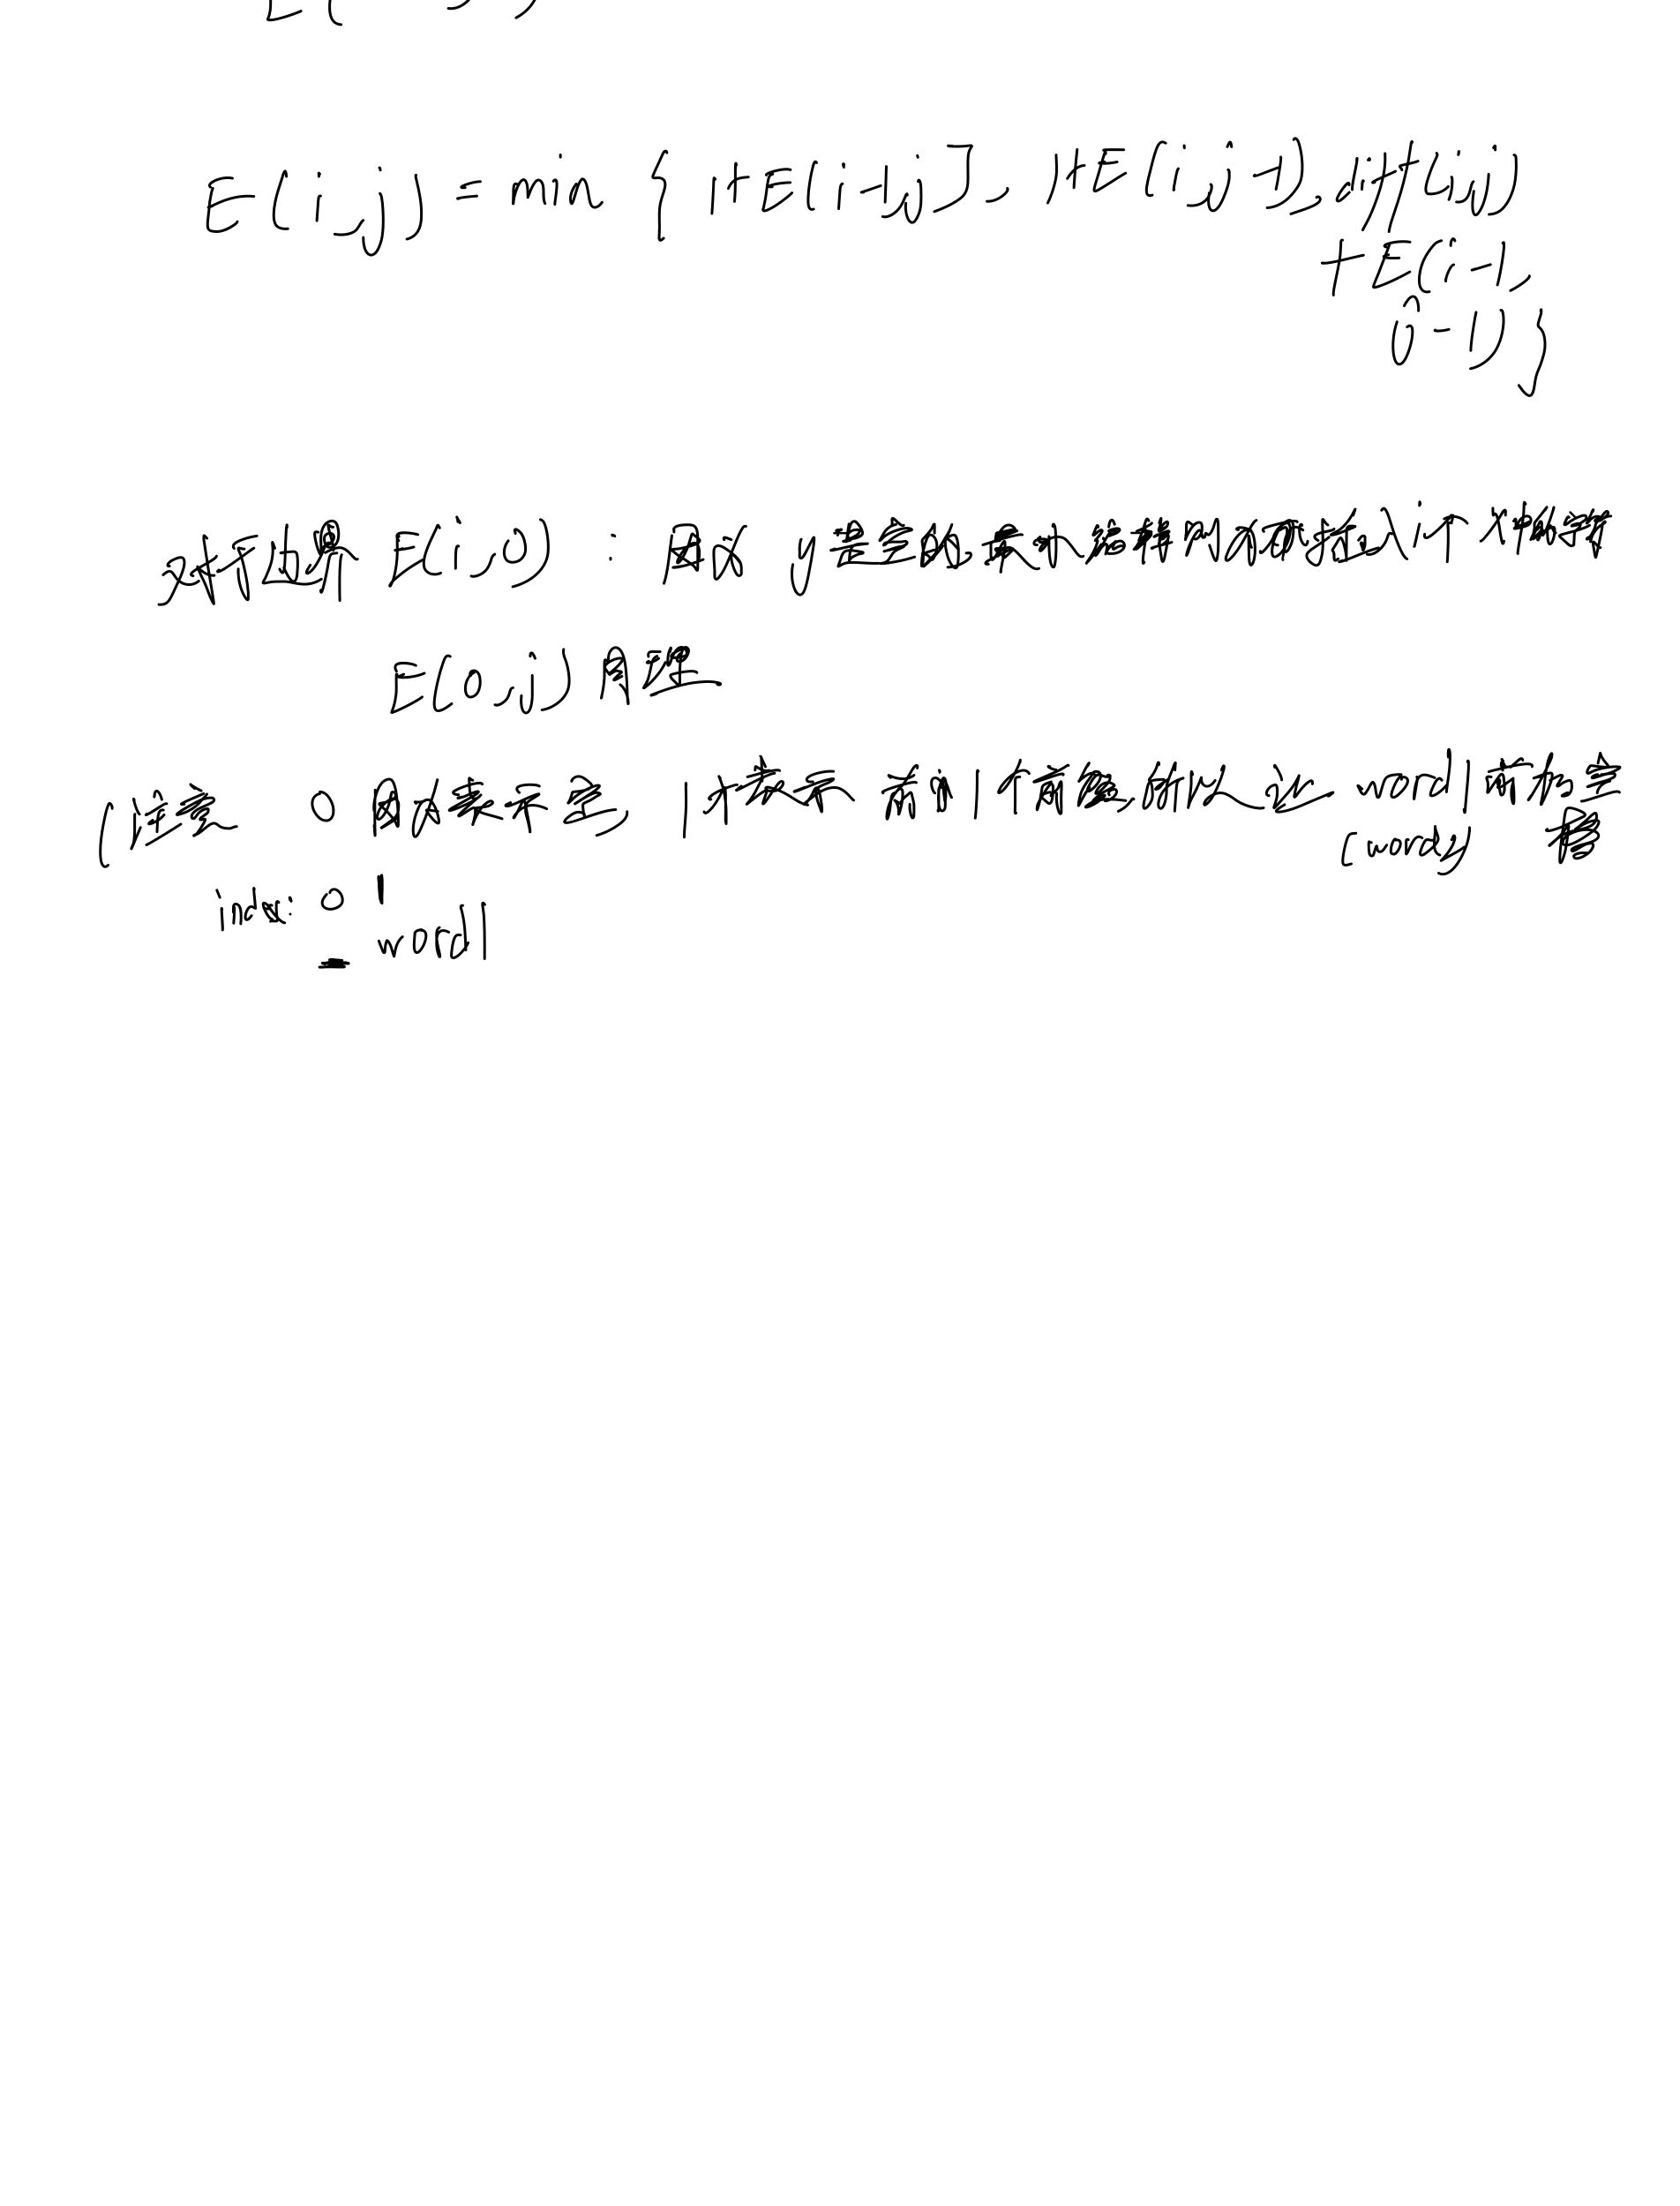 E(
E(i,j) = min { 1+E(i-1,j], 1+E(i,j-1), diff(i,j)
+E(i-1,
j-1) }
对于边界 E(i,0) : 因为 y是空的 最小编辑则为直接插入i个x中的字符
E(0,j) 同理
(注意 0 时候表示空, 1才表示 前1个前缀, 所以这 word1需加空
(word2) 格
index: 0 1
_ word1